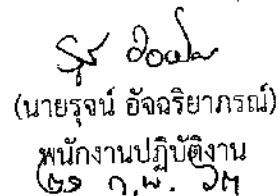 (นายรุจน์ อัจฉริยาภรณ์)
พนักงานปฏิบัติงาน
๒๑ ก.พ. ๖๗